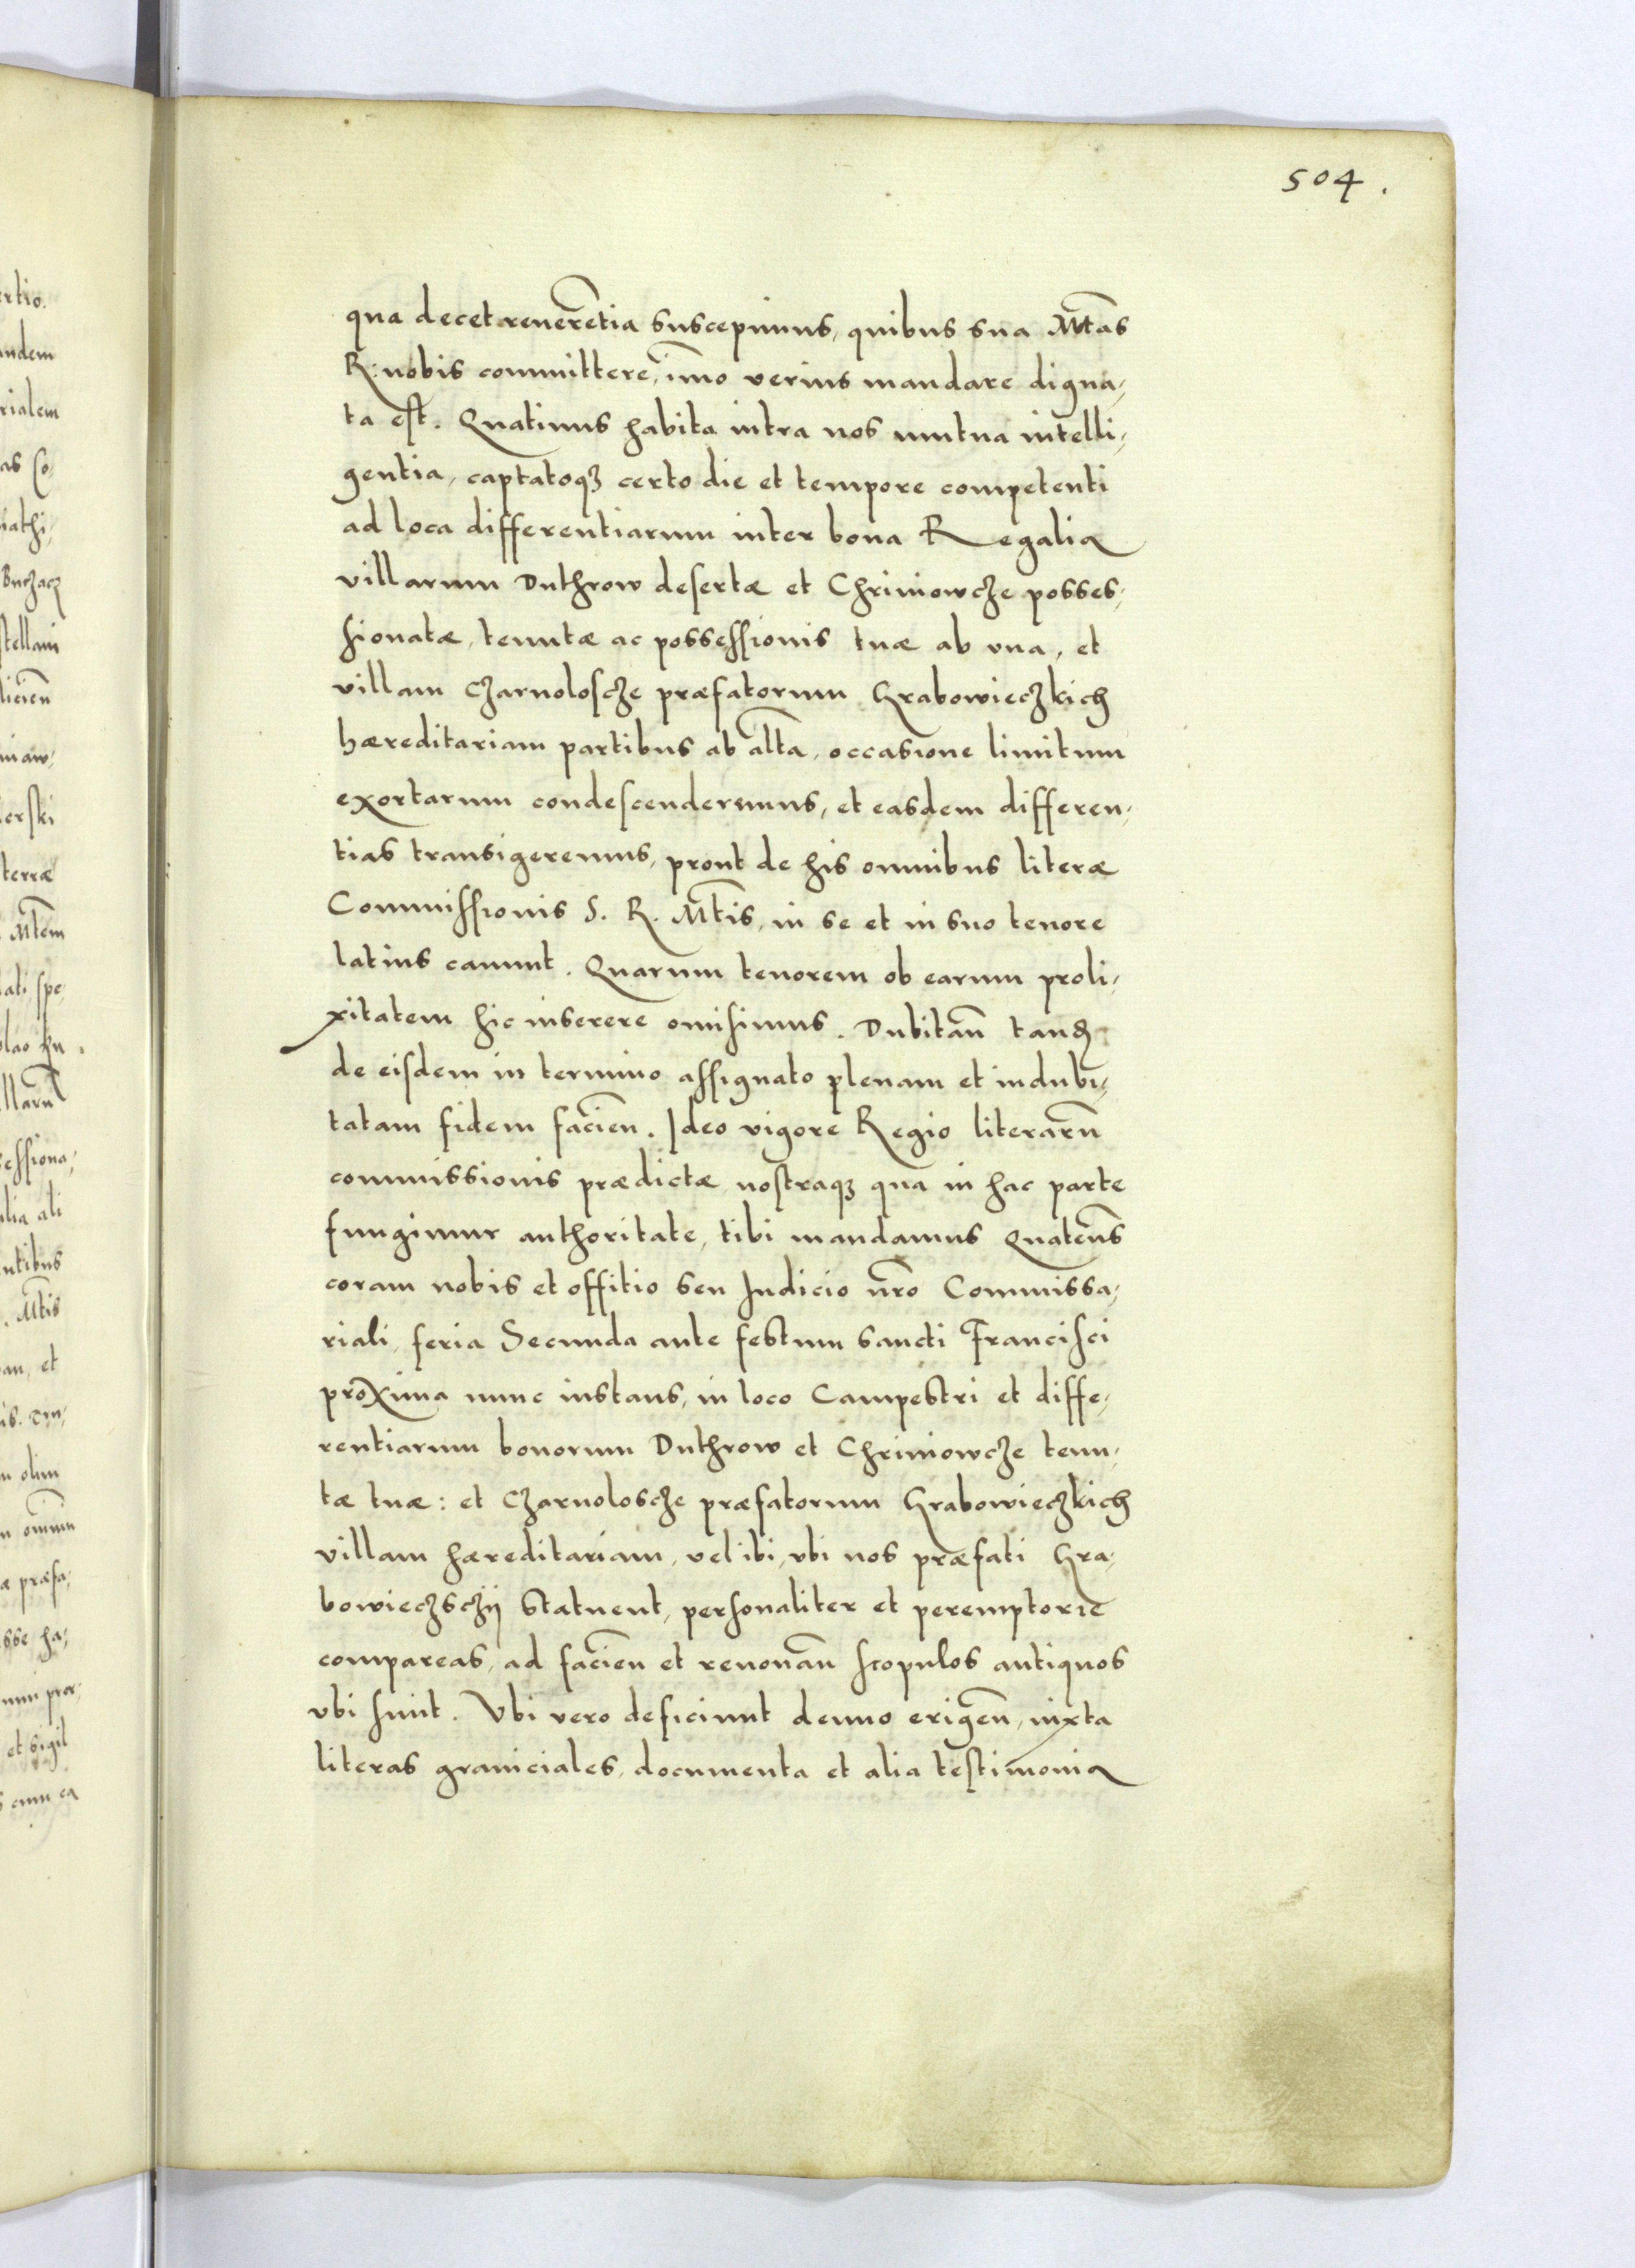 504.
qua decet reuerētia suscepimus, quibus sua Mtas
R: nobis committere, imo verius mandare digna,
ta est. Quatinus habita intra nos mutua intelli,
gentia, captatoqꝫ certo die et tempore competenti
ad loca differentiarum inter bona Regalia
villarum Duthrow desertæ et Chriniowcże posses,
sionatæ, tenutæ ac possessionis tuæ ab vna, et
villam Czarnoloscże præfatorum Grabowieczkich
hæreditariam partibus ab alta, occasione limitum
exortarum condescenderemus, et easdem differen,
tias transigeremus, prout de his omnibus literæ
Commissionis S. R. Mtis, in se et in suo tenore
latius canunt. Quarum tenorem ob earum proli,
xitatem hic inserere omisimus. Dubitan̄
de eisdem in termino assignato plenam et indubi,
tatam fidem facien̄. Ideo vigore Regio literarū
commissionis prædictæ nostraqꝫ qua in hac parte
fungimur authoritate, tibi mandamus Quaten̄s
coram nobis et offitio seu Iudicio nr̄o Commissa,
riali, feria Secunda ante festum sancti Francisci
proxima nunc instans, in loco Campestri et diffe,
rentiarum bonorum Duthrow et Chriniowcże tenu,
tæ tuæ: et Czarnoloscże præfatorum Grabowieczkich
villam hæreditariam, vel ibi, vbi nos præfati Gra,
bowieczsczij statuent, personaliter et peremptorie
compareas, ad facien̄ et renouan̄ scopulos antiquos
vbi sunt. Vbi vero deficiunt denuo erigen̄, iuxta
literas graniciales, documenta et alia testimonia
rtio.
andem
rialem
as Co,
nathi,
Buczacz
stellani
licien̄
niaw-
terræ
Mtem
ati, spe,
llarū
sessiona,
lia ali
ntibus
Mtis
an, et
n olim
æ præfa,
sse ha,
et sigil
cum ea